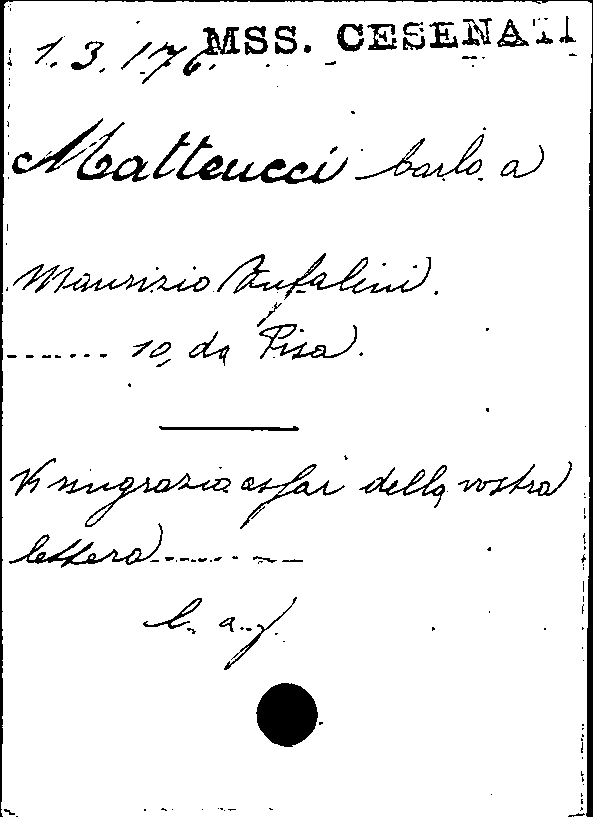 MSS. CESENATI
1.3.176.
Matteucci Carlo a
Maurizio Bufalini.
....... 10, da Pisa.
Vi ringrazio assai della vostra
lettera ..........
l. a. f.